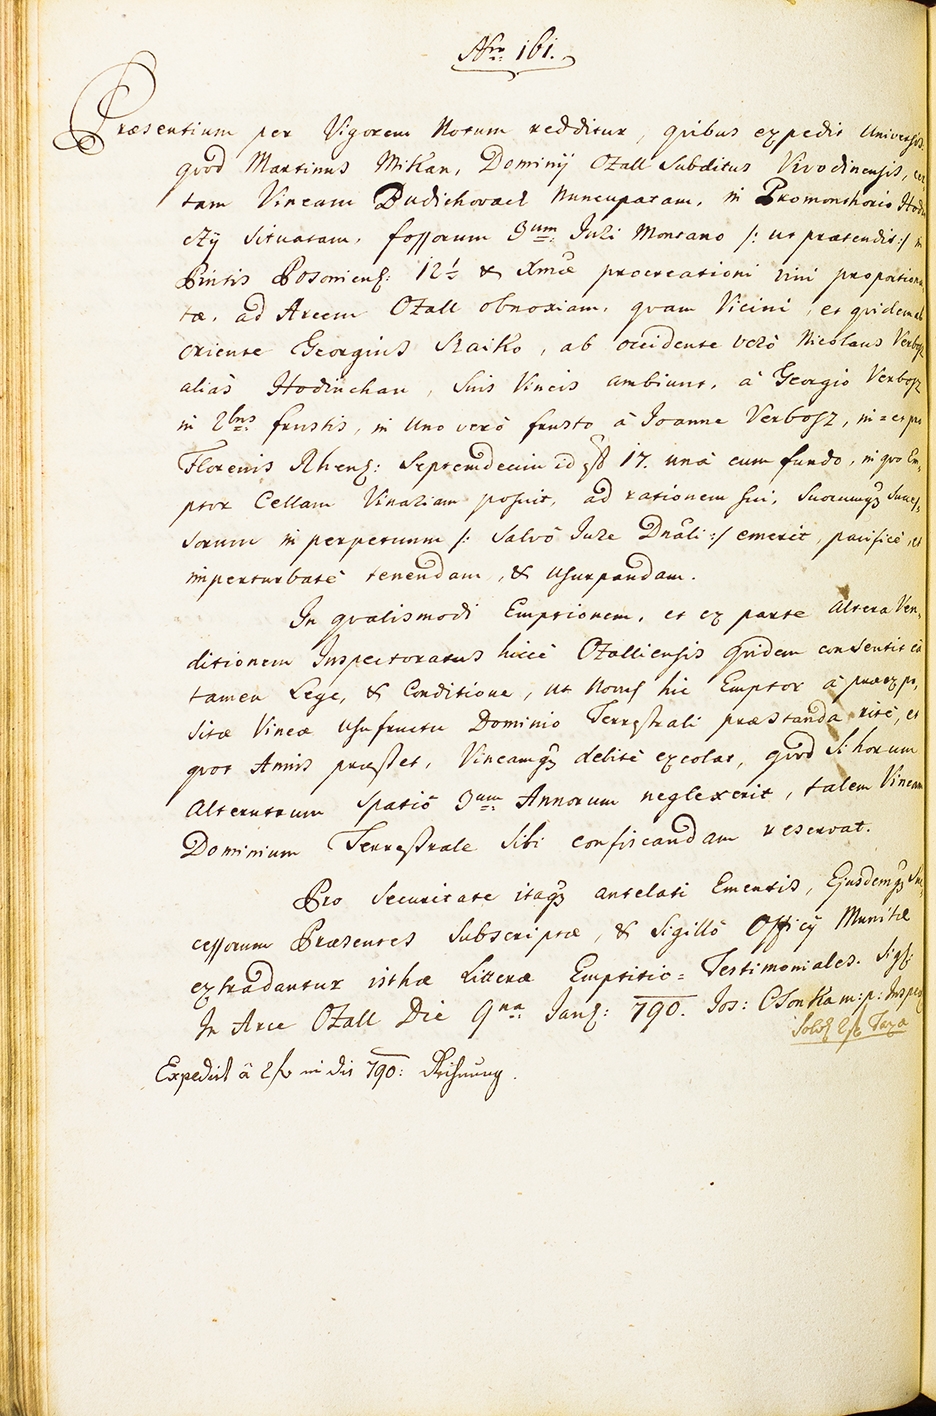 Nro 161.
Præsentium per Vigorem Notum redditur, quibus expedit Universis
quod Martinus Mikan, Dominij Ozall Subditus Vivodinensis, cer
tam Vineam Dudichovacz Nuncupatam, in Promonthorio Hodin
czy situatam, fossorum 3um Juri Montano /: ut prætendit :/ in
Pintis Posoniens: 12½ & Xmæ procreationi vini proportiona
tæ, ad Arcem Ozall obnoxiam, quam Vicini, et quidem ab
oriente Georgius Raiko, ab occidente verò Nicolaus Verbosz
aliàs Hodinchan, suis Vineis ambiunt, à Georgio Verbosz
in 2bus frustis, in Uno verò frusto à Joanne Verbosz, in = et pro
Florenis Rhens: Septemdecim id est 17. unà cum fundo, in quo Em-
ptor Cellam Vinariam posuit, ad rationem sui, Suorumq3 Succes-
sorum in perpetuum /: Salvô Jure Dnāli :/ emerit, pacificè, et
imperturbatè tenendam, & Usurpandam.
In qualismodi Emptionem, et ex parte altera Ven-
ditionem Inspectoratus hicce Ozalliensis quidem consentit eâ
tamen Lege, & Conditione, ut hic Emptor à præexpo-
sitæ Vineæ Usufructu Dominio Terrestrali præstanda ritè, et
quot Annis præstet, Vineamq3 debitè excolat, quod si horum
Alterutrum spatiô 3um Annorum neglexerit, talem Vineam
Dominium Terrestrale sibi confiscandam reservat.
Pro Securitate itaq3 antelati Ementis, Ejusdemq3 Suc-
cessorum Præsentes subscriptæ, & Sigillô Officij Munitæ
extradantur isthæ Litteræ Emptitio = Testimoniales. Sigl:
In Arce Ozall Die 9na Jan: 790. Jos: Csonka m:p: Inspec
Solv 2f Taxa
Expedirt à 2f in die 790: Rechnung.